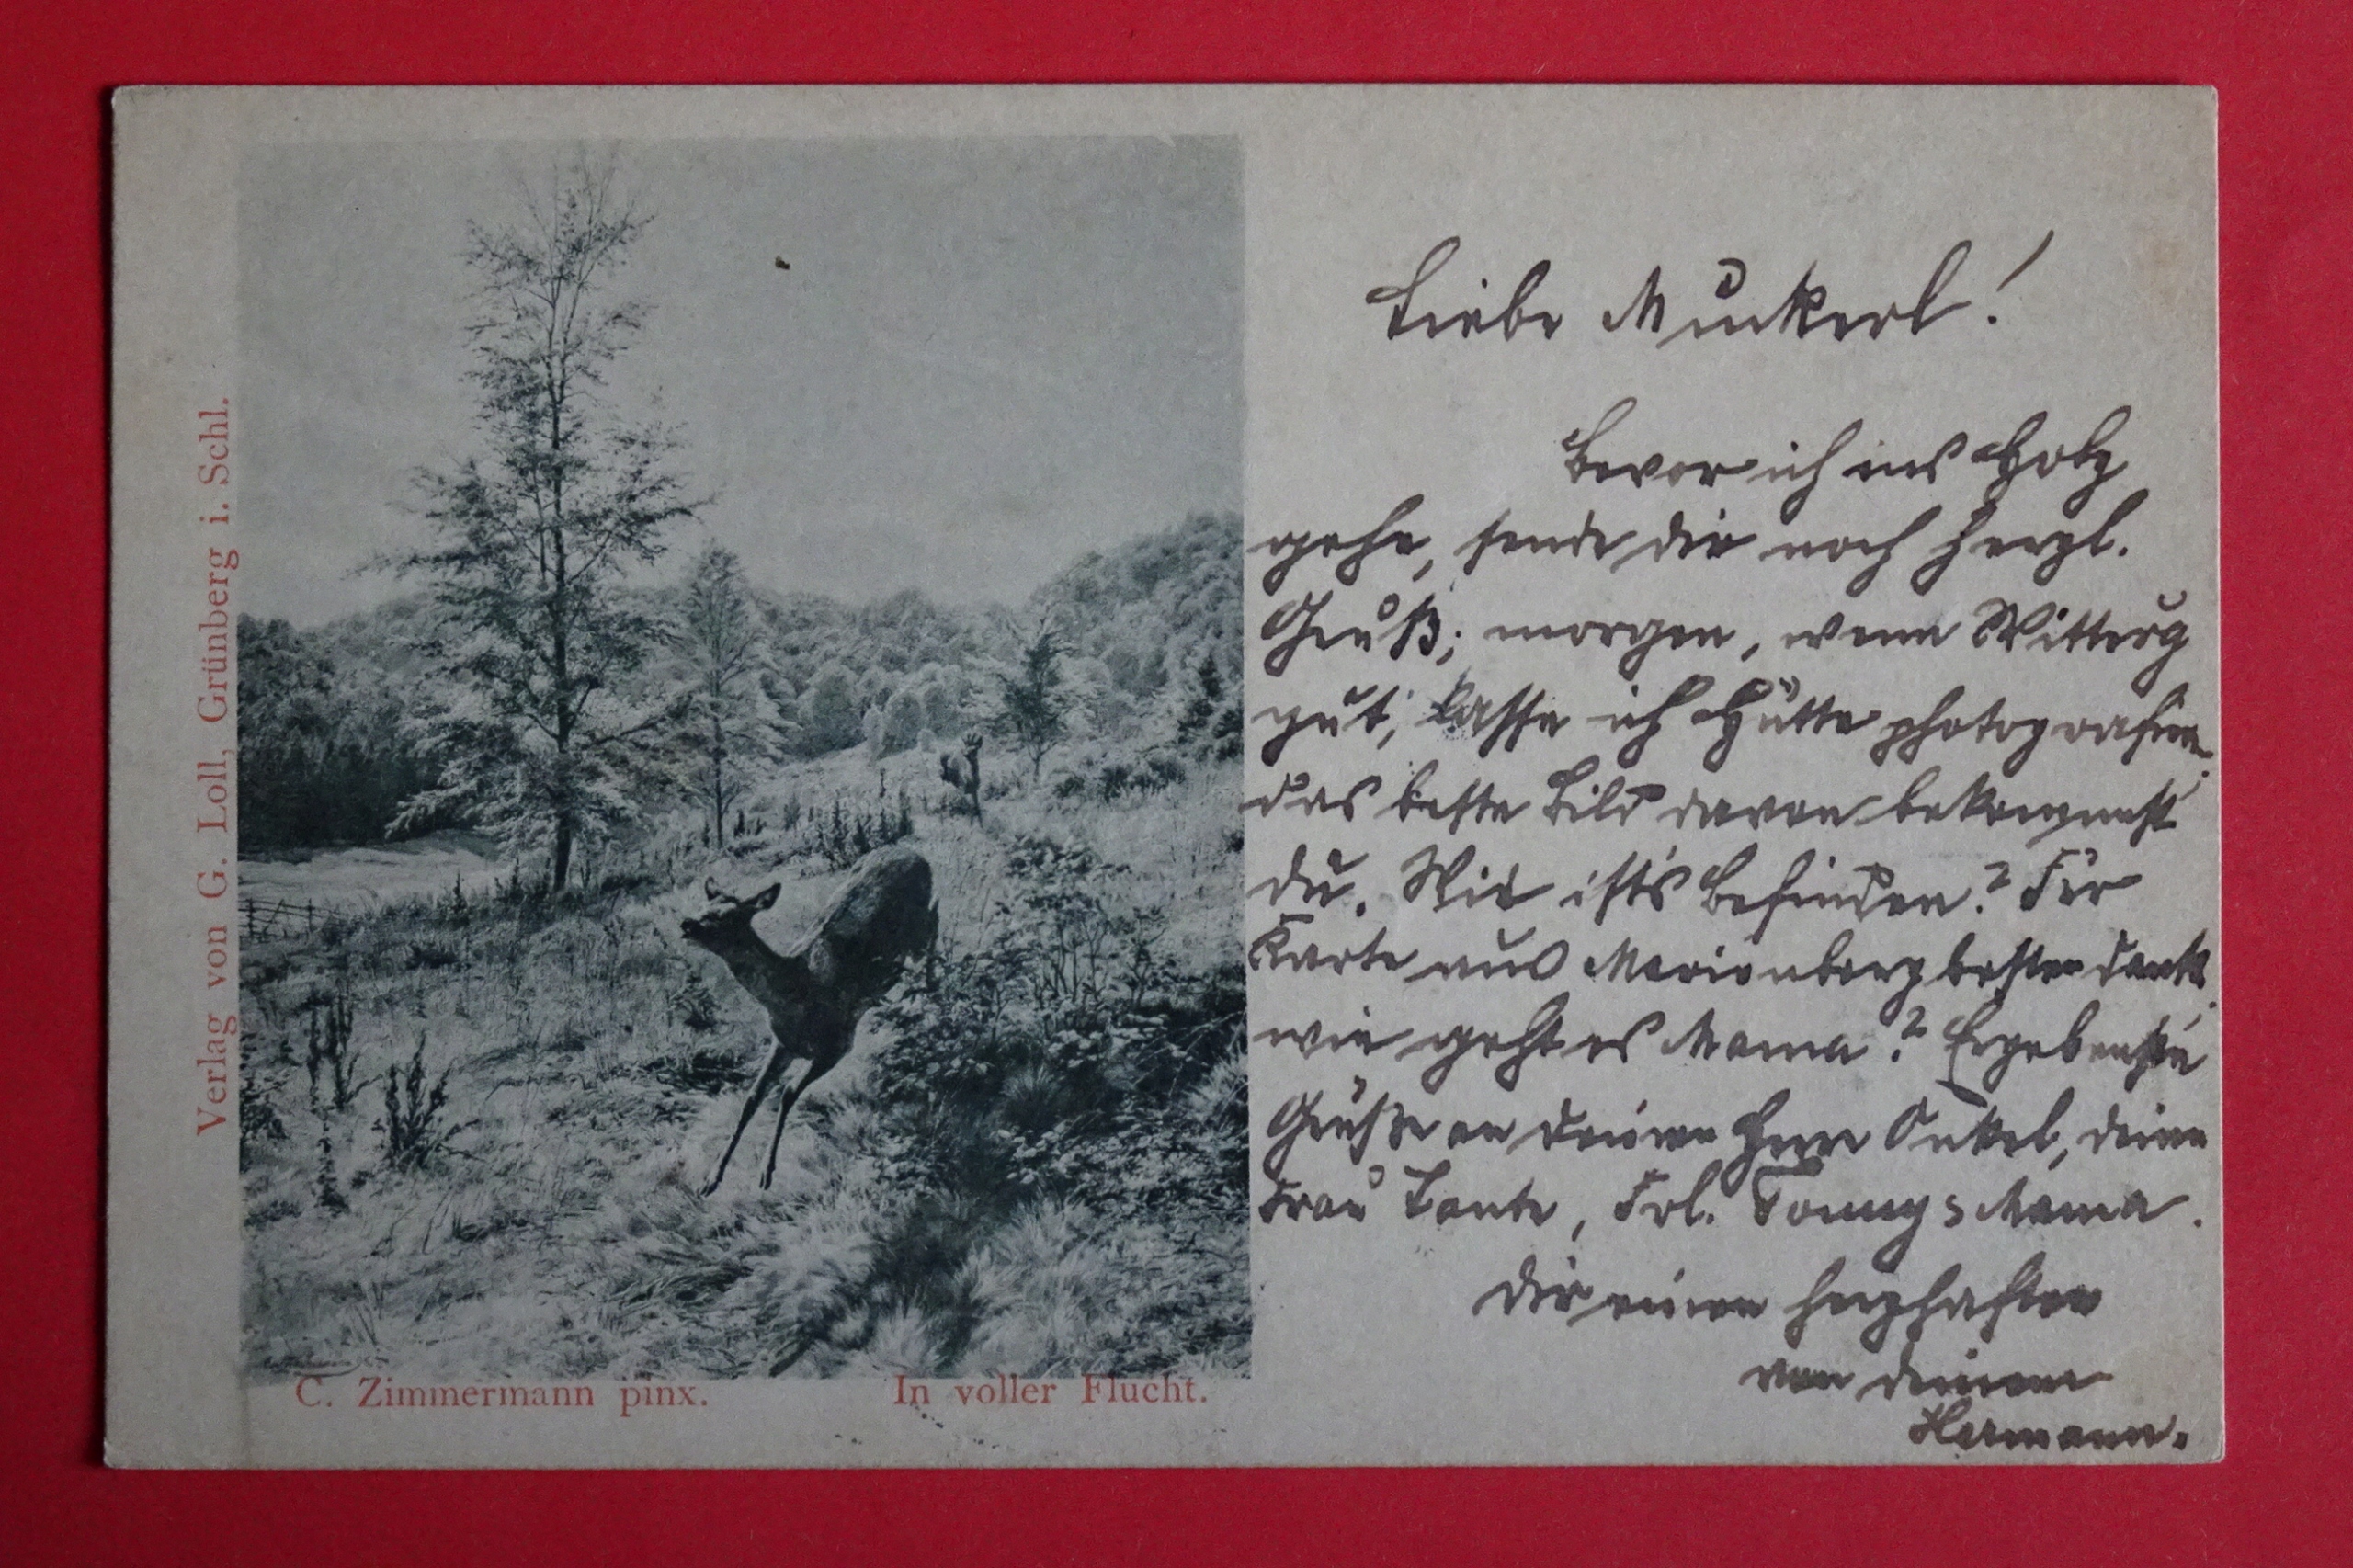 Verlag von G. Loll, Grünberg i. Schl.
C. Zimmermann pinx.
In voller Flucht.
Liebe Muckerl!
Bevor ich ins Holz
gehe, sende dir noch herzl.
Gruß; morgen, wenn Witterg
gut, lasse ich Hütte photografieren.
das beste Bild davon bekommst
du. Wie ist's Befinden? Für
Karte aus Marienberg besten Dank.
wie geht es Mama? Ergebenste
Grüße an deinen Herrn Onkel, deine
Frau Tante, Frl. Mama.
Dir einen herzhaften
von deinem
Hermann.